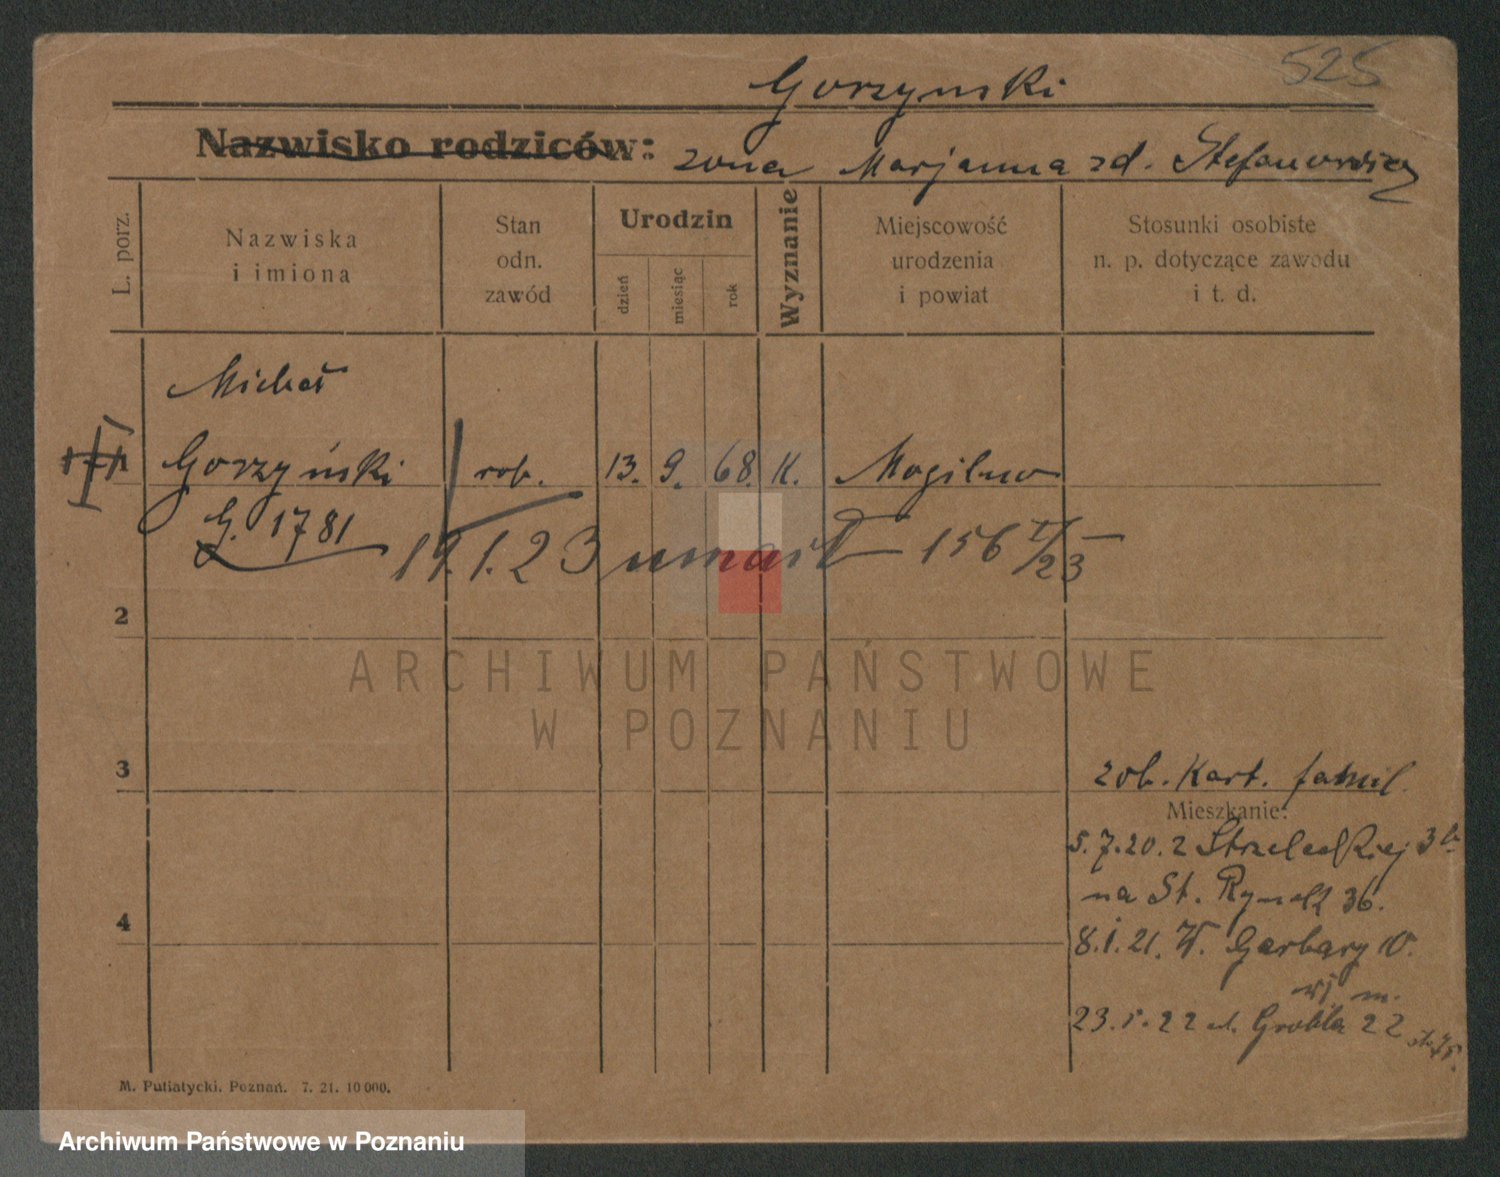 525
Gorzynski
Nazwisko rodziców: żona Marjanna zd. Stefanowicz
L. porz.
Nazwiska
i imiona
Stan
odn.
zawód
Urodzin
dzień
miesiąc
rok
Wyznanie
Miejscowość
urodzenia
i powiat
Stosunki osobiste
n. p. dotyczące zawodu
i t. d.
Michał
Gorzyński rob. 13. 9. 68. K. Mogilno
G. 1781
19.1.23 umarł 156 I/23
2
ARCHIWUM PAŃSTWOWE
W POZNANIU
3
zob. Kart. famil.
Mieszkanie:
5.7.20. z Strzeleckiej 3
na St. Rynek 36.
4
8.1.21. W. Garbary 10.
23. 22 Grobla 22
M. Putiatycki. Poznań. 7. 21. 10 000.
Archiwum Państwowe w Poznaniu